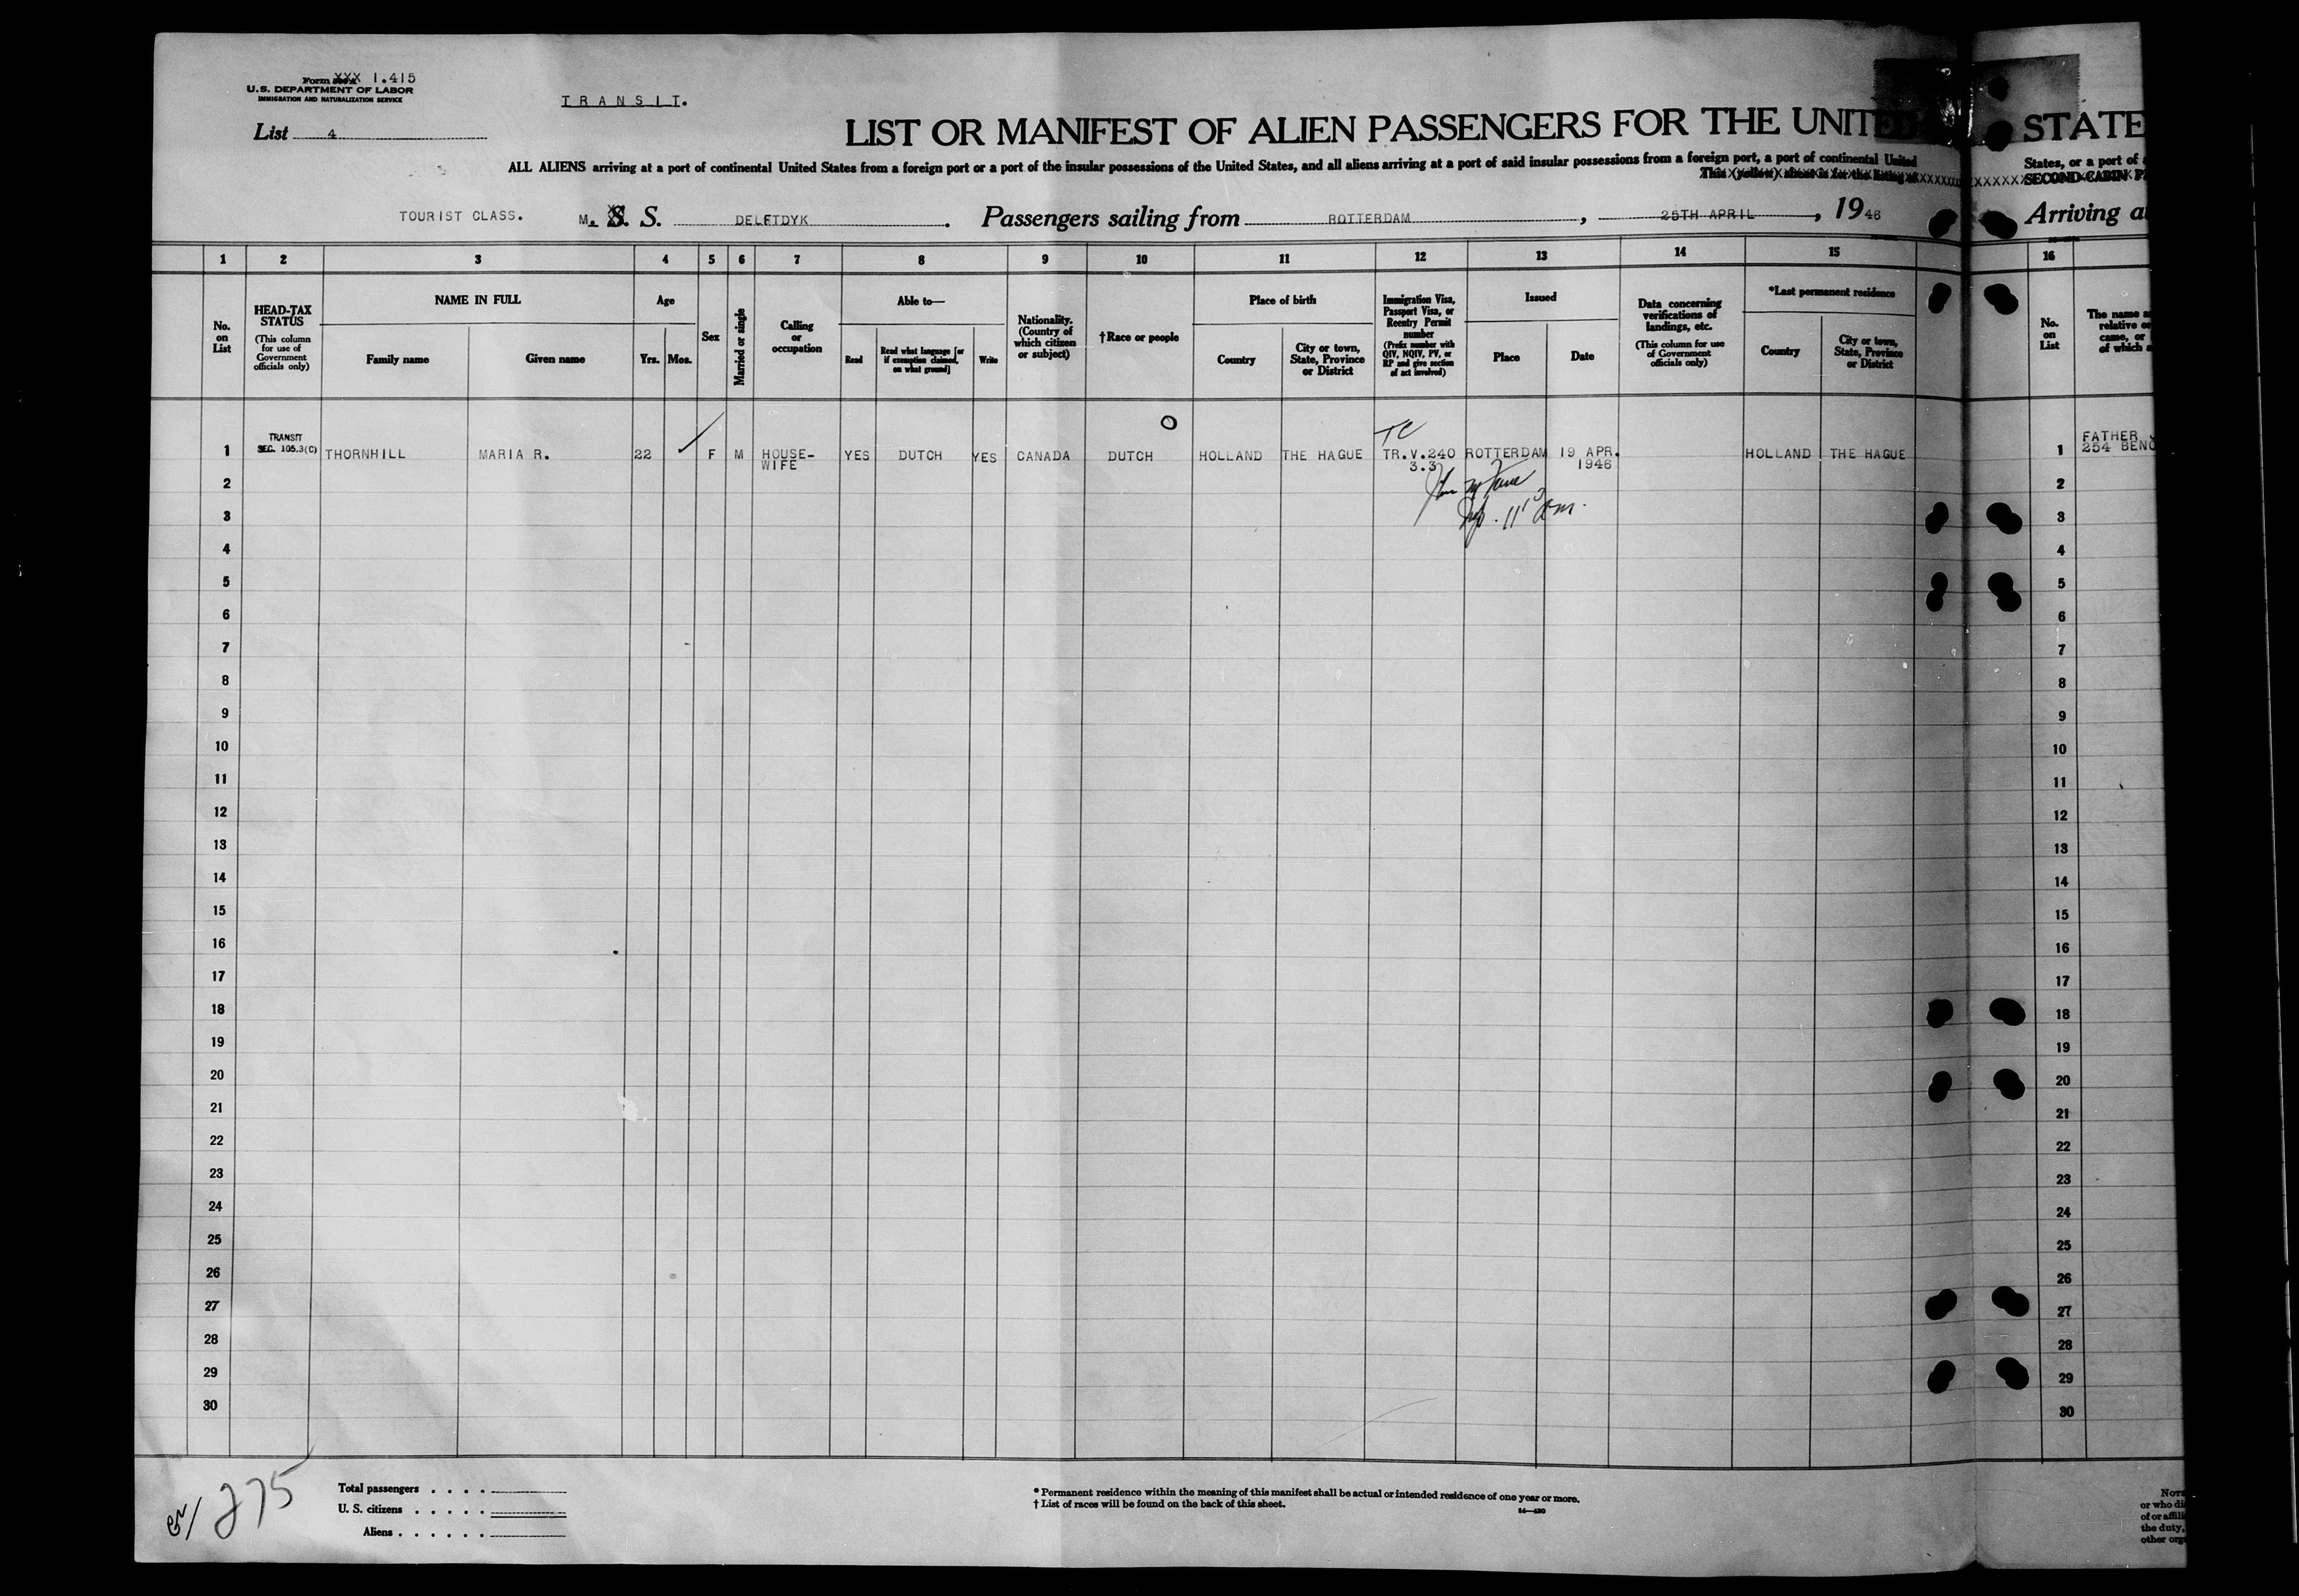 Form XXX 1.415
U.S. DEPARTMENT OF LABOR
IMMIGRATION AND NATURALIZATION SERVICE
TRANSIT.
List 4
LIST OR MANIFEST OF ALIEN PASSENGERS FOR THE UNITED STATE
ALL ALIENS arriving at a port of continental United States from a foreign port or a port of the insular possessions of the United States, and all aliens arriving at a port of said insular possessions from a foreign port, a port of continental United States, or a port of
This (yellow) sheet is for the listing of SECOND-CABIN P
TOURIST CLASS. M. S. S. DELFTDYK. Passengers sailing from ROTTERDAM, 25TH APRIL, 1946 Arriving a
1 2 3 4 5 6 7 8 9 10 11 12 13 14 15 16
No. on List
HEAD-TAX STATUS
(This column for use of Government officials only)
NAME IN FULL
Family name
Given name
Age
Yrs.
Mos.
Sex
Married or single
Calling or occupation
Able to—
Read
Read what language [or if exemption claimed, on what ground]
Write
Nationality. (Country of which citizen or subject)
†Race or people
Place of birth
Country
City or town, State, Province or District
Immigration Visa, Passport Visa, or Reentry Permit number
(Prefix number with QIV, NQIV, PV, or RP and give section of act involved)
Issued
Place
Date
Data concerning verifications of landings, etc.
(This column for use of Government officials only)
*Last permanent residence
Country
City or town, State, Province or District
No. on List
The name a
relative o
came, or
of which a
TC
TRANSIT
SEC. 105.3(C)
1 THORNHILL MARIA R. 22 F M HOUSE-WIFE YES DUTCH YES CANADA DUTCH HOLLAND THE HAGUE TR.V.240 3.3 ROTTERDAM 19 APR. 1946 HOLLAND THE HAGUE 1 FATHER
254 BENO
2 2
3 3
4 4
5 5
6 6
7 7
8 8
9 9
10 10
11 11
12 12
13 13
14 14
15 15
16 16
17 17
18 18
19 19
20 20
21 21
22 22
23 23
24 24
25 25
26 26
27 27
28 28
29 29
30 30
275
Total passengers . . . .
U. S. citizens . . . . .
Aliens . . . . . .
* Permanent residence within the meaning of this manifest shall be actual or intended residence of one year or more.
† List of races will be found on the back of this sheet.
or who di
of or affili
the duty,
other org